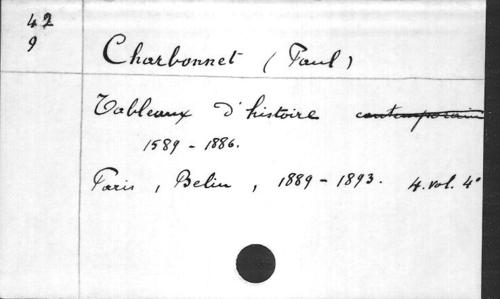 42
9
Charbonnet (Paul)
Tableaux d'histoire contemporaine
1589 - 1886.
Paris, Belin, 1889 - 1893. 4. vol. 4°